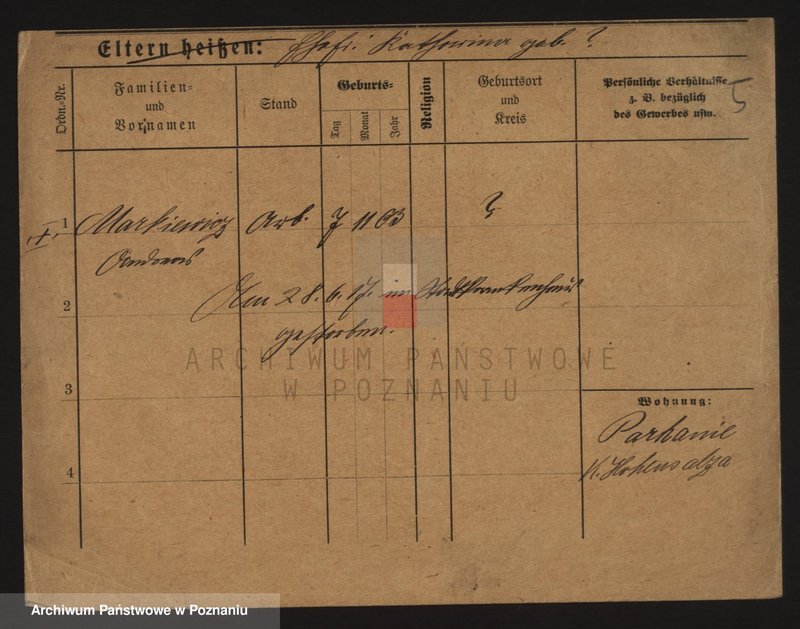 Eltern heißen: Ehefr. Katharina geb. ?
Ordn.-Nr.
Familien-
und
Vornamen
Stand
Geburts-
Tag
Monat
Jahr
Religion
Geburtsort
und
Kreis
Persönliche Verhältnisse
z. B. bezüglich
des Gewerbes usw.
5
1 Markiewicz Arb. 7 11 63 ?
Andreas
2 Am 28. 6. 17. im Stadtkrankenhaus
gestorben.
ARCHIWUM PAŃSTWOWE
W POZNANIU
3
Wohnung:
Parkanie
K. Hohensalza
4
Archiwum Państwowe w Poznaniu